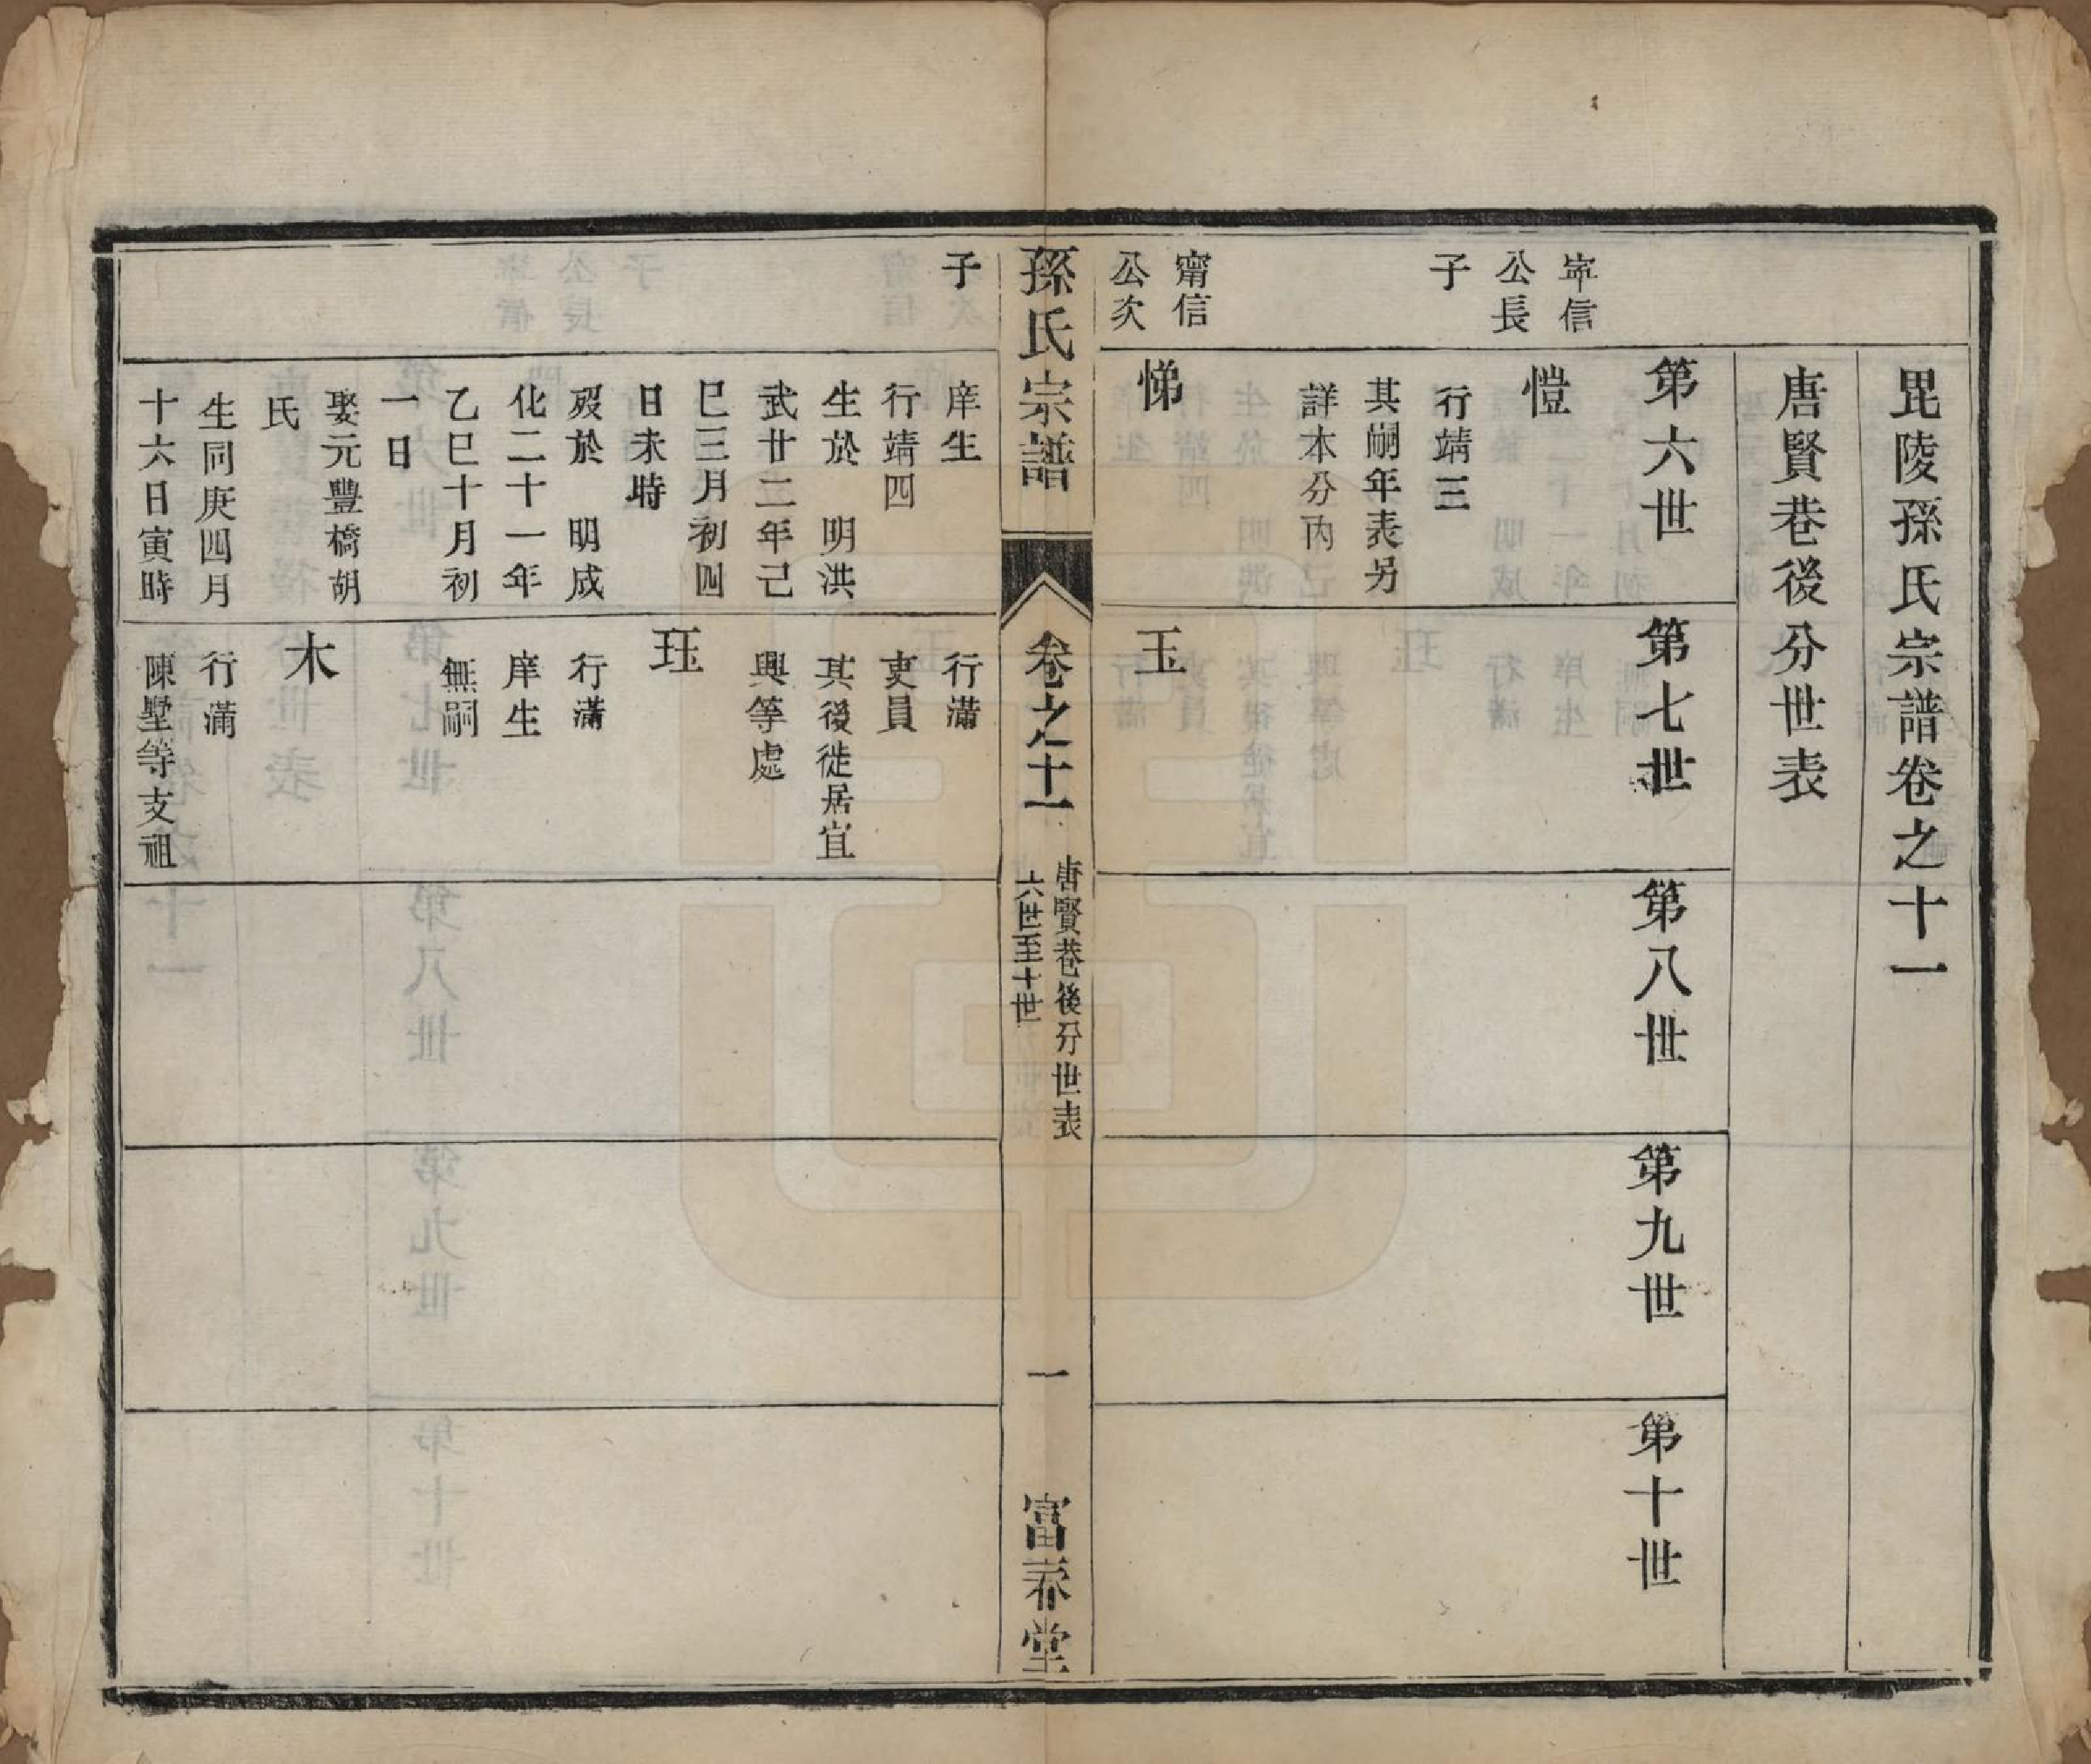 毘陵孫氏宗譜卷之十一
唐賢巷後分世表
第六世
第七世
第八世
第九世
第十世
甯信
公長
子
愷
行靖三
其嗣年表另
詳本分內
甯信
公次
子
悌
庠生
行靖四
生於 明洪
武廿二年己
巳三月初四
日未時
歿於 明成
化二十一年
乙巳十月初
一日
娶元豐橋胡
氏
生同庚四月
十六日寅時
玉
行滿
吏員
其後徙居宜
興等處
玨
行滿
庠生
無嗣
木
行滿
陳墅等支祖
孫氏宗譜
卷之十一
唐賢巷後分世表
六世至十世
一
富春堂